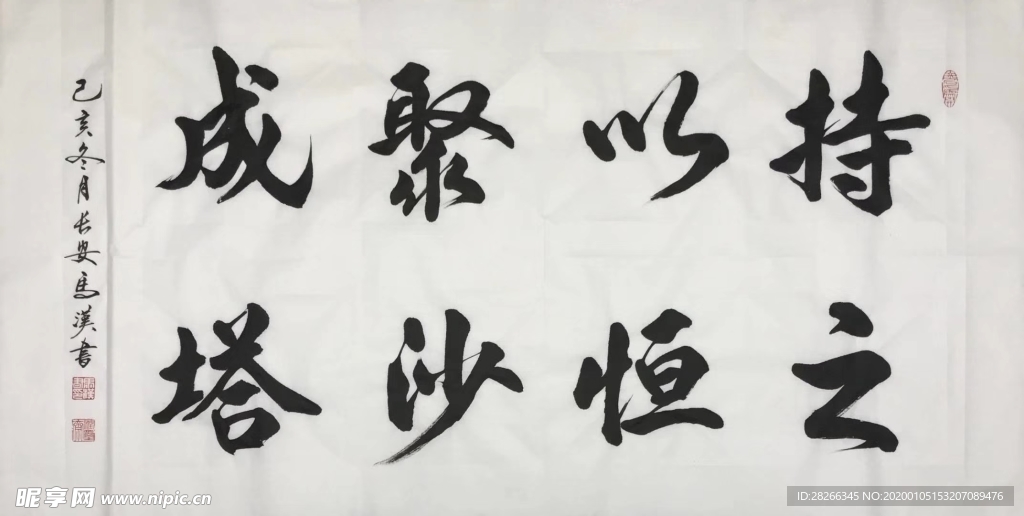 持之
以恒
聚沙
成塔
己亥冬月长安馬漢書
昵享网 www.nipic.cn
ID:28266345 NO:20200105153207089476